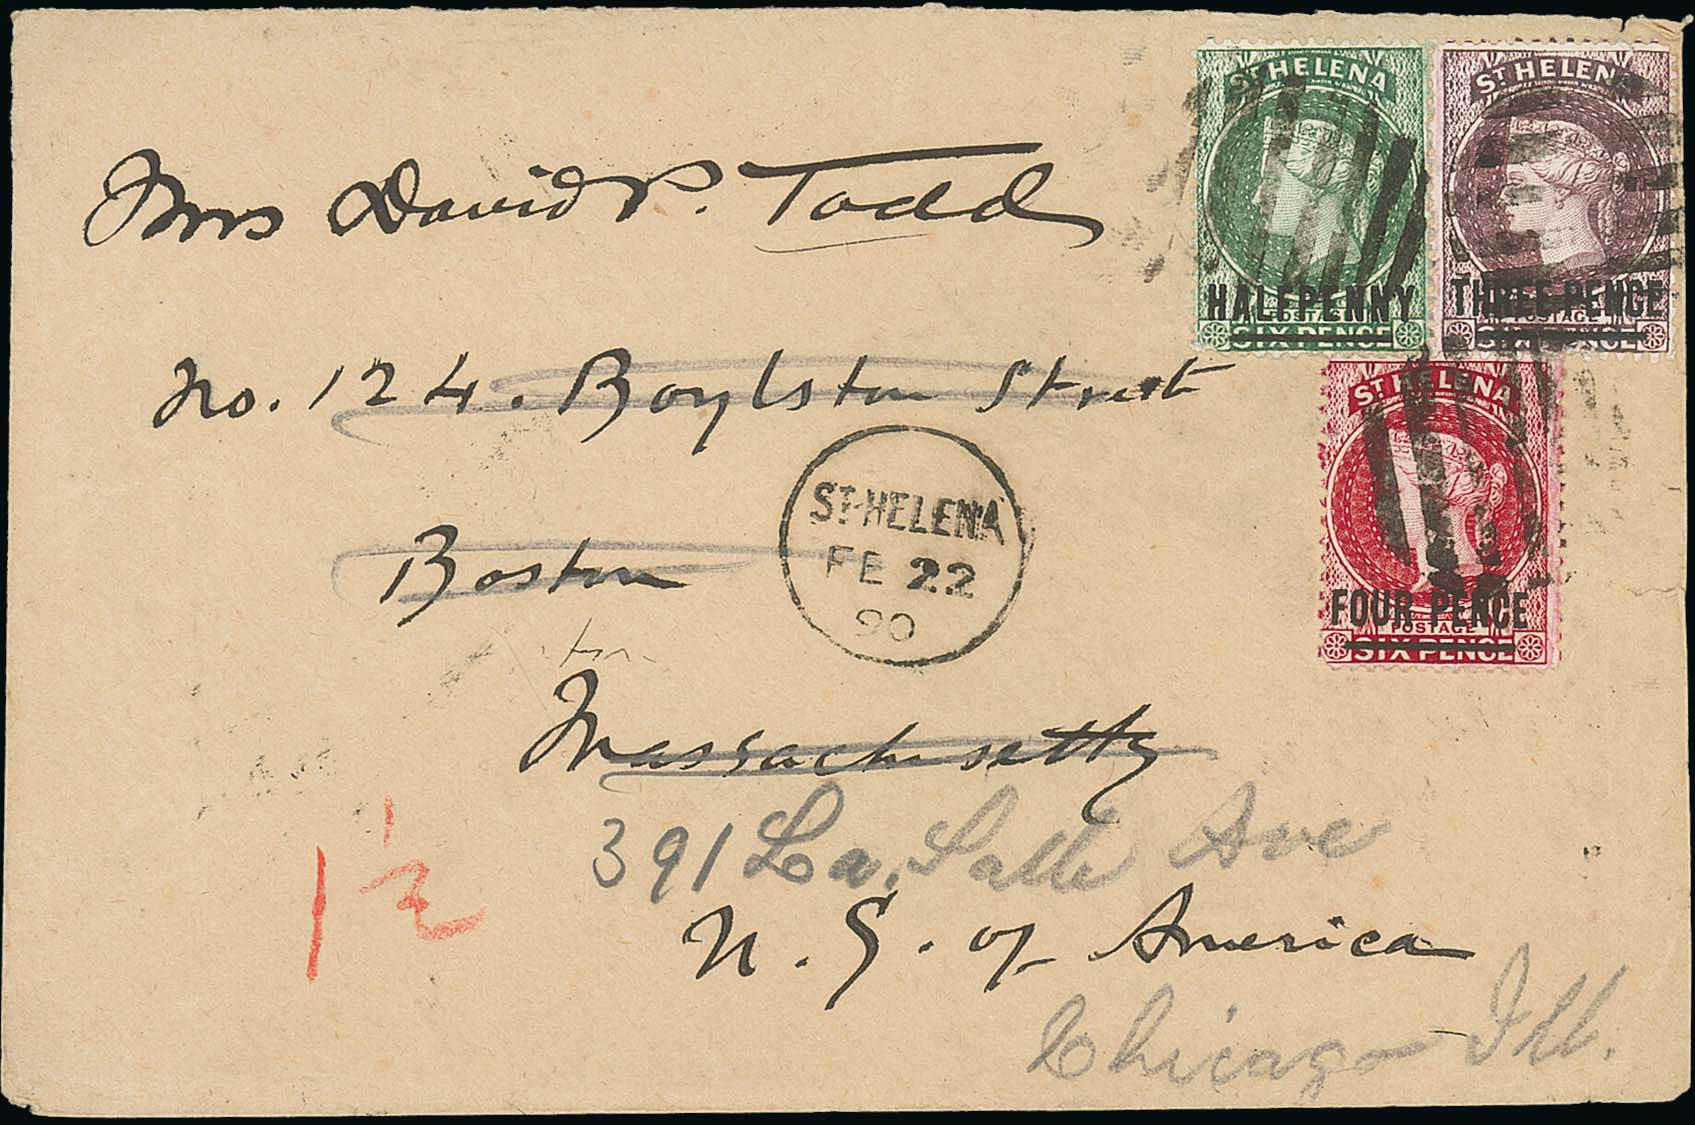 ST HELENA
HALFPENNY
POSTAGE
SIX PENCE
ST HELENA
THREE PENCE
POSTAGE
SIX PENCE
Mrs David P. Todd
No. 124. Boylston Street
ST HELENA
FOUR PENCE
POSTAGE
SIX PENCE
ST. HELENA
FE 22
90
Boston
Massachusetts
1 1/2
391 La Salle Ave
U. S. of America
Chicago Ill.